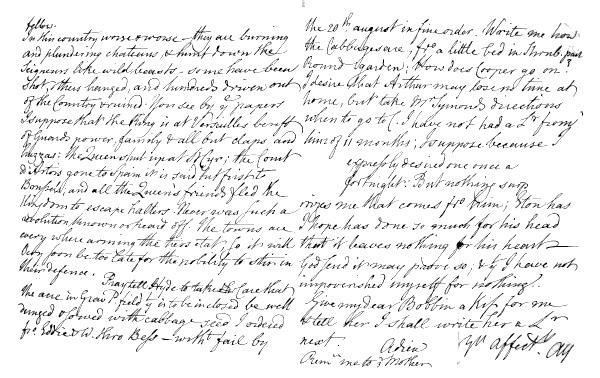 fellow.
In this country worse & worse — they are burning
and plundering chateaus, & hunt down the
Seigneurs like wild beasts – some have been
Shot, others hanged, and hundreds driven out
of the Country & ruined. You see by yᵉ papers
I suppose that the King is at Versailles bereft
of Guards power, family & all but claps and
huzzas: the Queen shut up at St. Cyr; the Count
d'Artois gone to Spain it is said but first to
and all the Queen's friends fled the
Kingdom to escape halters. Never was such a
revolution known or heard off. The towns are
every where arming the tiers etat; So it will
very soon be too late for the nobility to stir in
their defence. Pray tell Hide to take care that
the acre in Grav P. field yᵗ is to be inclosed be well
dunged & sowed with cabbage seed I ordered
frᵒ & W. thro Bess — withᵗ fail by
the 20ᵗʰ august in fine order. Write me how
the Cabbages are, frᵒ a little bed in Shrub. part
round garden; How does Cooper go on?
I desire that Arthur may lose no time at
home, but take Mʳ Symonds directions
when to go to C. I have not had a Lʳ from
him of 11 months; I suppose because I
expressly desired one once a
fortnight: But nothing sur
rizes me that comes frᵒ him; Eton has
I hope has done so much for his head
that it leaves nothing for his heart –
God send it may prove so; & yᵗ I have not
impoverished myself for nothing.
Give my dear Bobbin a Kiss for me
& tell her I shall write her a Lʳ
next. Adieu
Remʳ me to yʳ Mother
Yʳˢ affectˡʸ AY